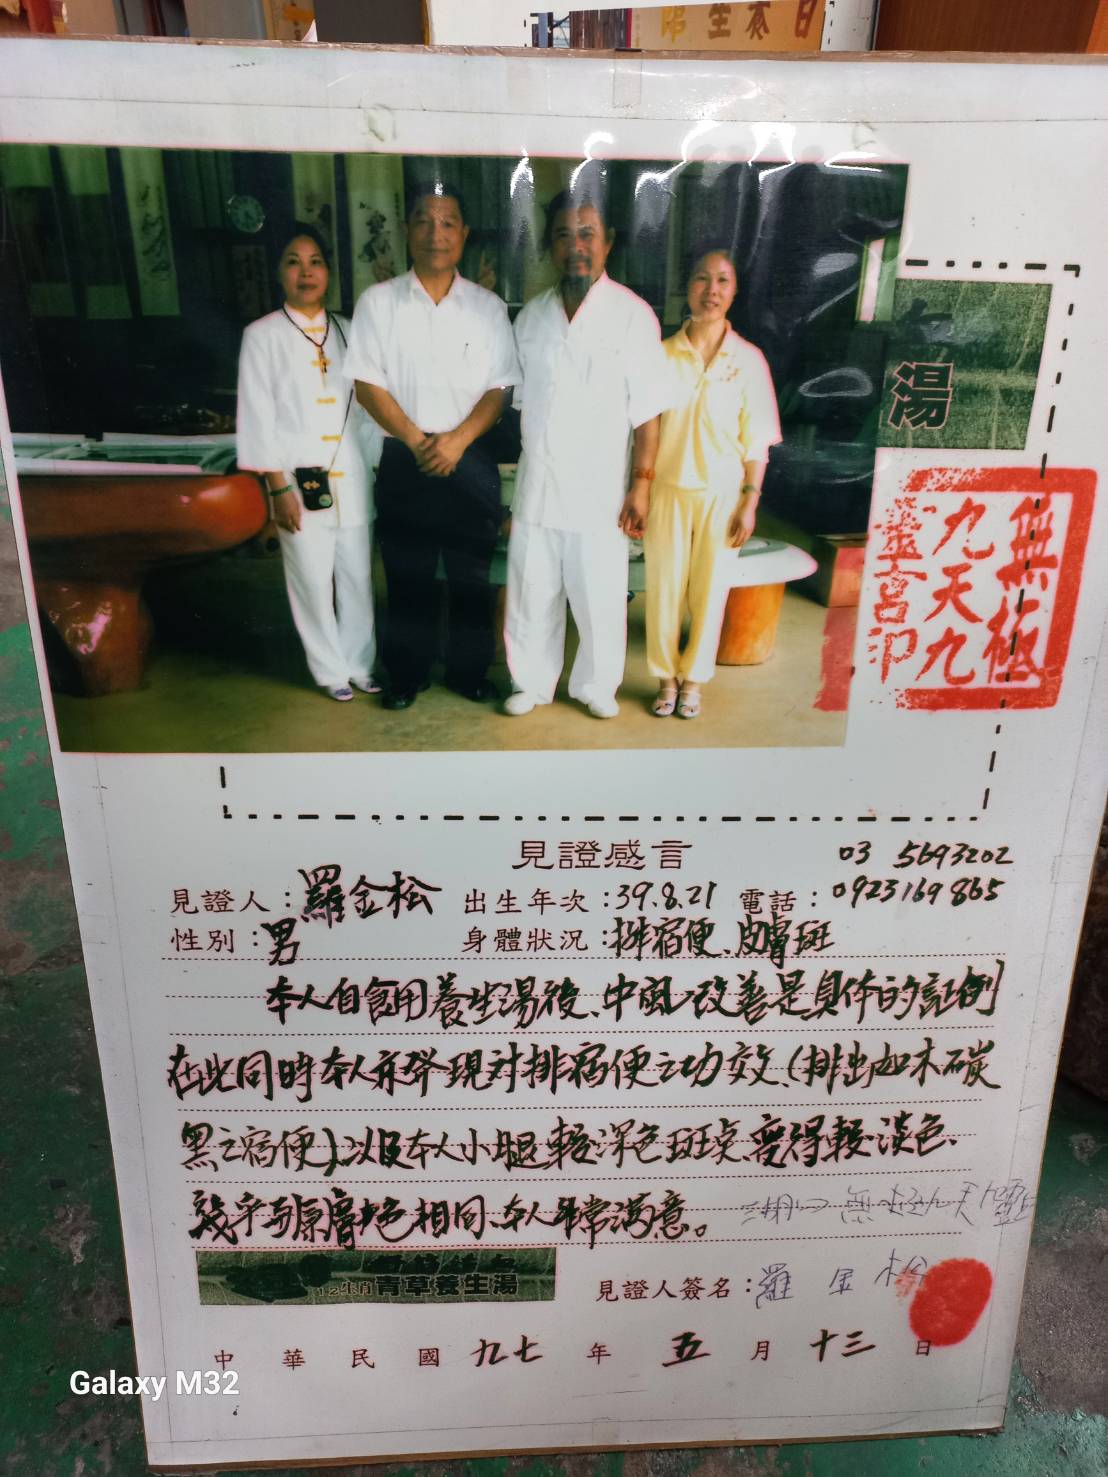 日本生命
湯
無極
九天九
靈宮印
見證感言
03 5693202
見證人：羅金松 出生年次：39.8.21 電話：0923169865
性別：男 身體狀況：排宿便、皮膚斑
本人自食用養生湯後、中風改善是具体的証例
在此同時本人亦發現對排宿便之功效（排出如木碳
黑之宿便）以及本人小腿較深色斑点、變得較淡色、
幾乎與原膚色相同、本人非常滿意。
湖口無極九天靈
12生肖青草養生湯
見證人簽名：羅金松
中華民國九七年五月十三日
Galaxy M32